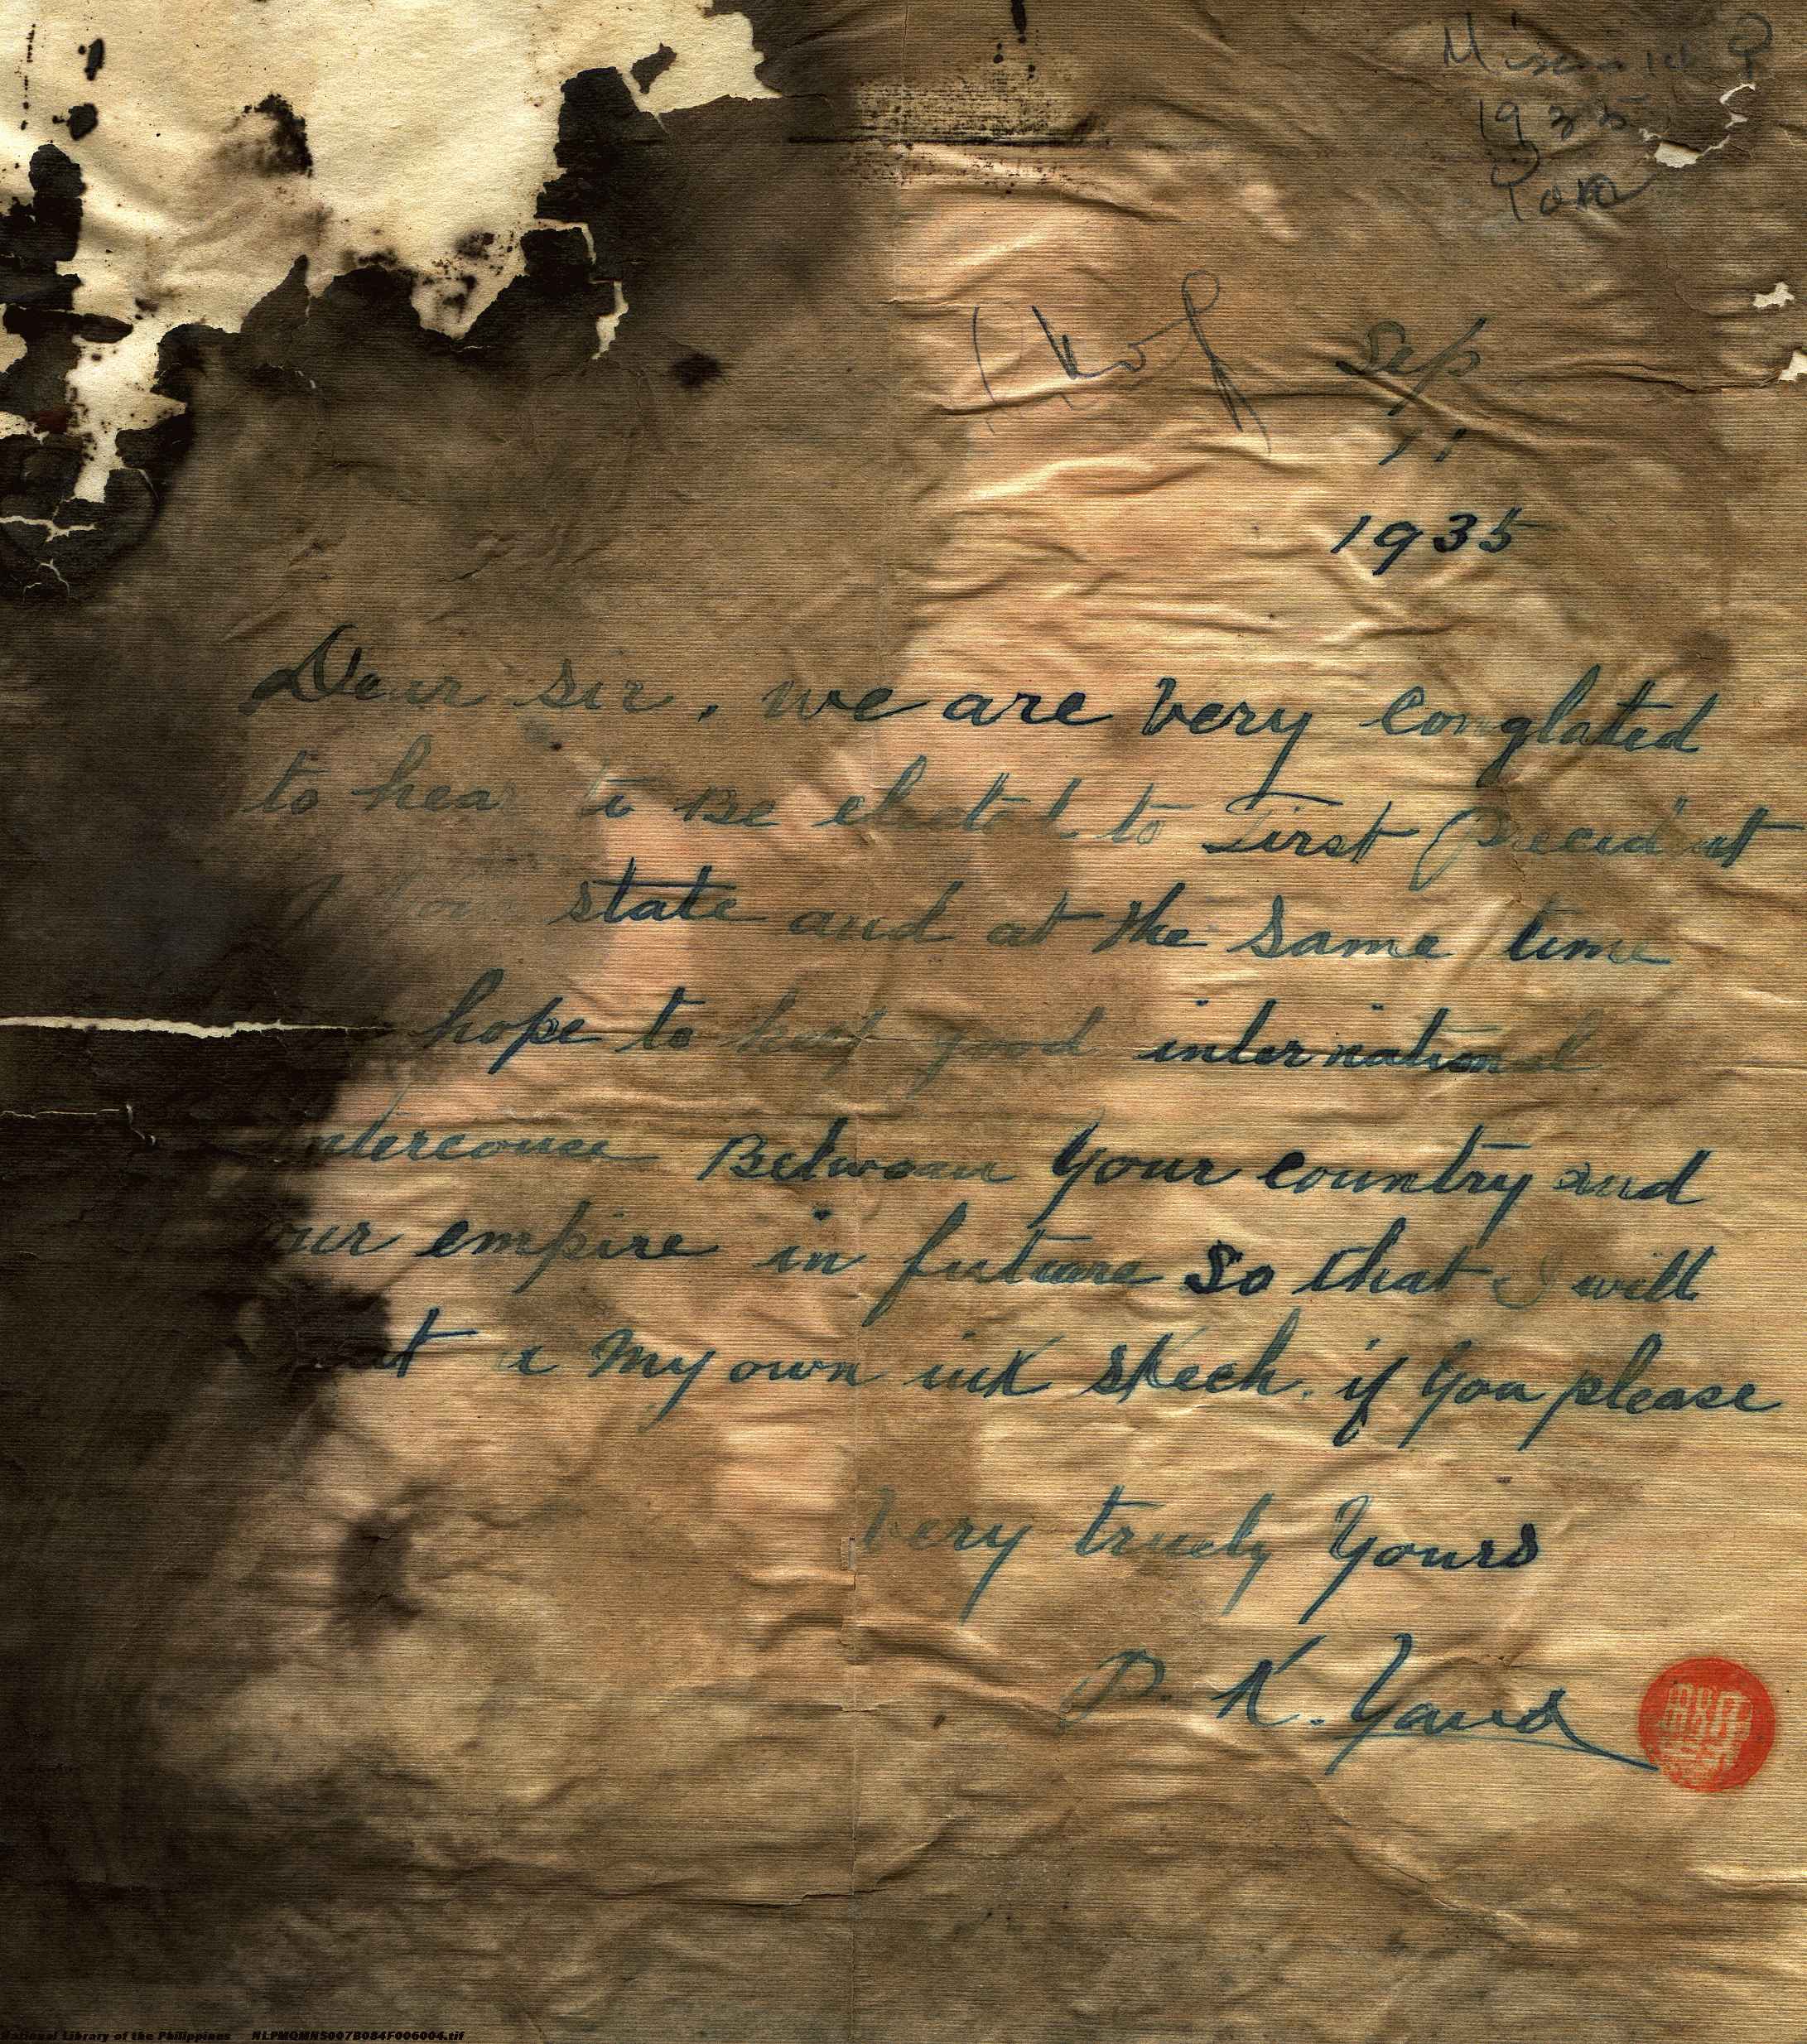 1935
Sep
11
1935
Dear sir, we are very conglated
to hear to Be elected to First
state and at the same time
hope to good international
Between your country and
our empire in future so that I will
my own ink skech. if you please
very truely yours
P. K. Yand
National Library of the Philippines NLPMQMNS007B084F006004.tif